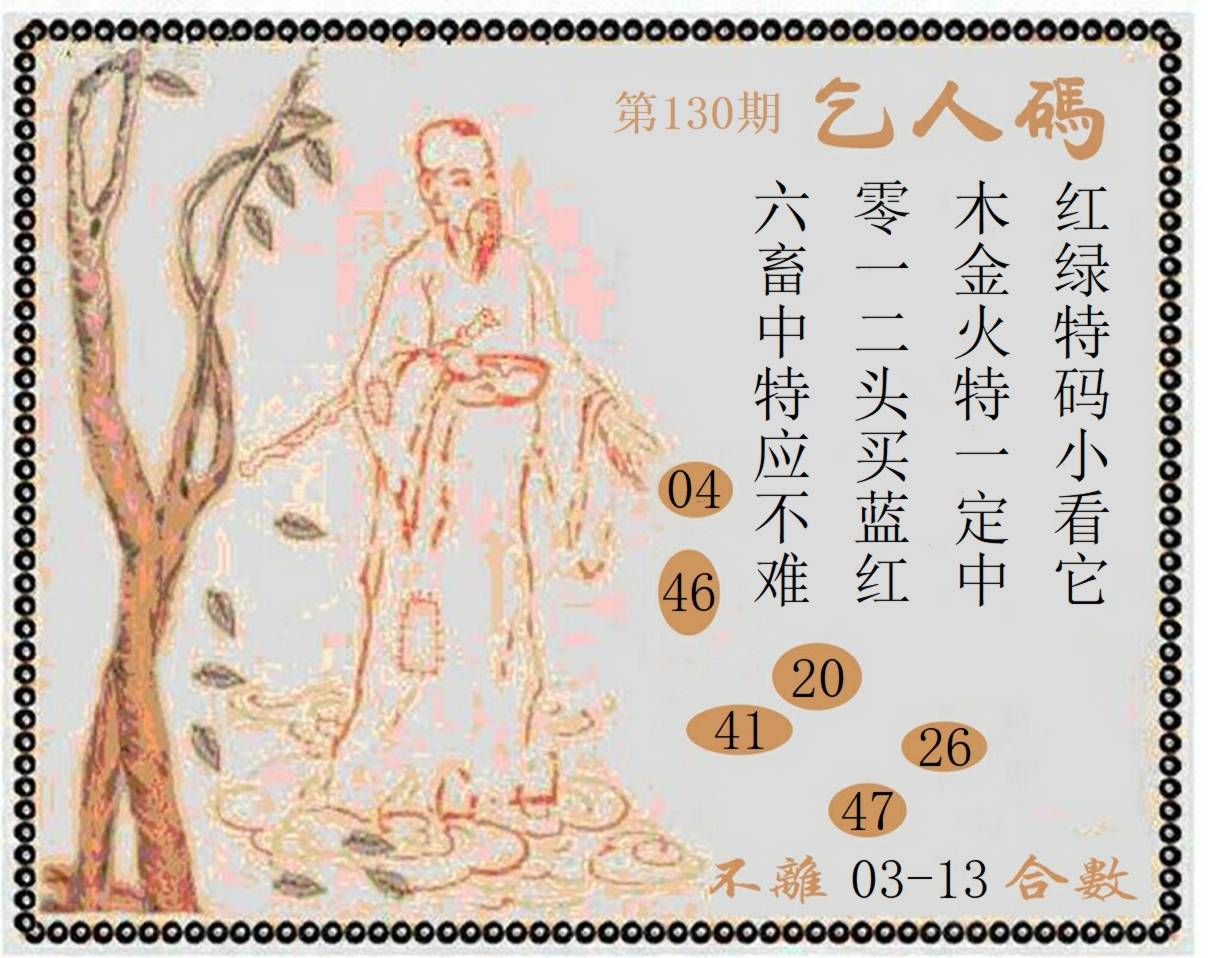 第130期 乞人碼
红绿特码小看它
木金火特一定中
零一二头买蓝红
六畜中特应不难
04
46
20
41
26
47
不離 03-13 合數